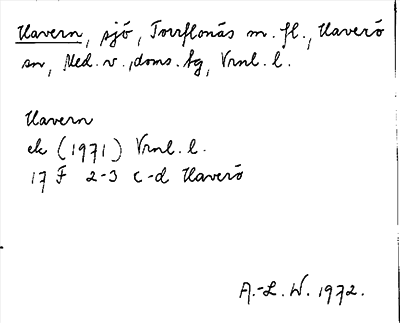 Havern, sjö, Torrflonäs m.fl., Haverö
sn, Med. v., doms. hg, Vrnl. l.
Havern
ek (1971) Vrnl. l.
17 F 2-3 c-d Haverö
A.-L. W. 1972.